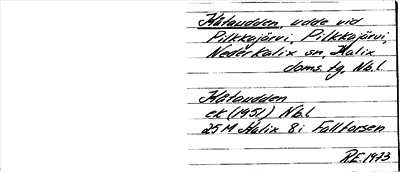 Håtaudden, udde vid
Pilkkajärvi, Pilkkajärvi,
Nederkalix sn, Kalix
doms. tg, Nb.l.
Håtaudden
ek (1951) Nb.l
25 M Kalix 8i Fallforsen
R.E. 1973